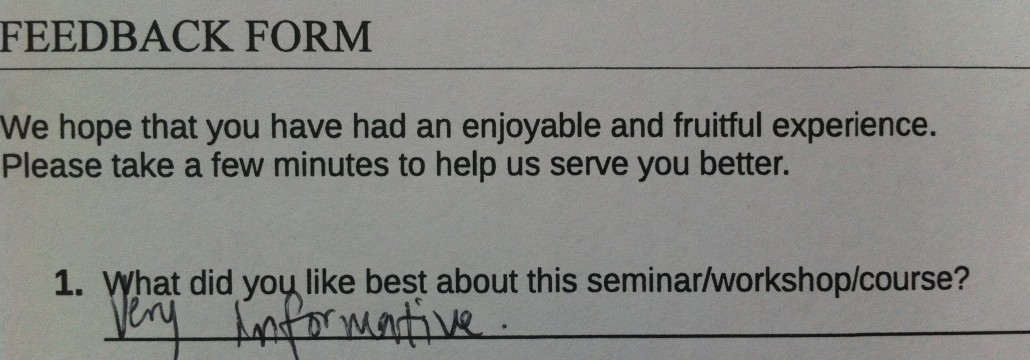 FEEDBACK FORM
We hope that you have had an enjoyable and fruitful experience.
Please take a few minutes to help us serve you better.
1. What did you like best about this seminar/workshop/course?
Very Informative.